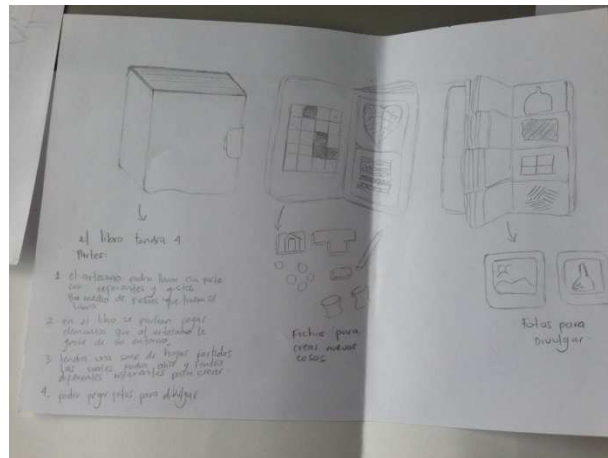 el libro tendra 4
Partes:
1. el artesano podra hacer una ruta
con referentes y gustos
por medio de cosas que traera el
libro.
2. en el libro se podran pegar
elementos que al artesano le
guste de su entorno.
3. tendra una serie de hojas partidas
las cuales podra abrir y tendra
diferentes referentes para crear
4. podra pegar fotos para divulgar
Fichas para
crear nuevas
cosas
Fotos para
Divulgar.